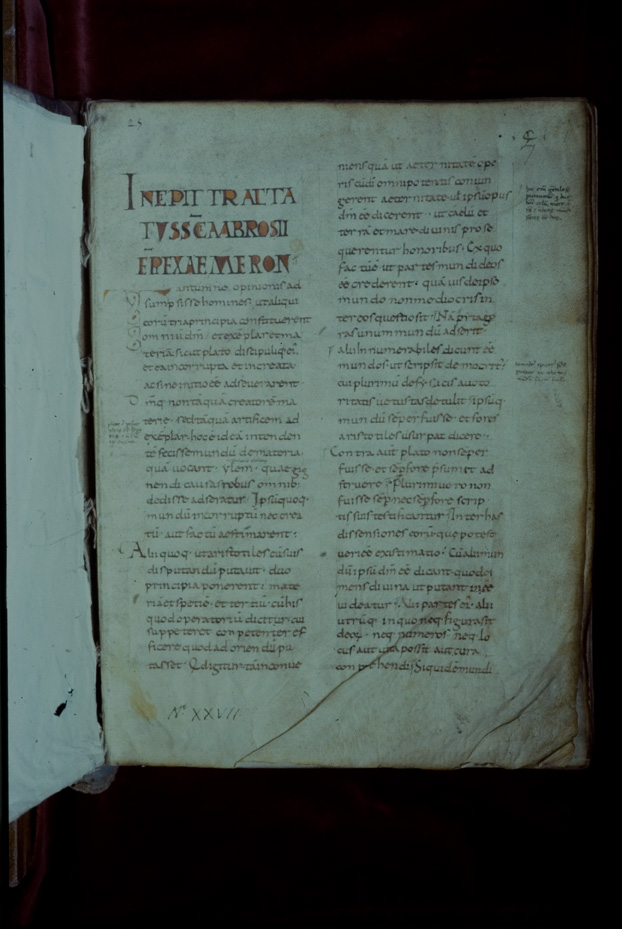 25
INCIPIT TRACTA
TUS S̄C̄I AMBROSII
EP̄I EXAEMERON
Tantumne opinionis ad
sumpsisse homines ut aliqui
eorū tria principia constituerent
omniū dm̄ et exemplar et ma
teriā sicut plato discipuliq; ei;
et ea incorrupta et increata
ac sine initio eē adseverarent
Dm̄q; non tāquā creatorē ma
terie sed tāquā artificem ad
exēplar hoc ē ideā intenden
tē fecisse mundū de materia
quā vocant ylem quae gig
nendi causas rebus omnib;
dedisse adseratur Ipsūquoq;
mundū incorruptū nec crea
tū aut factū aestimarent
Alii quoq; ut aristotiles cū suis
disputandū putavit duo
principia ponerent mate
riā et spetiē et tertiū cū his
quod operatoriū dicitur cui
suppeteret conpetenter ef
ficere quod adoriendū pu
tasset Quid igitur tā inconve
Nº XXVII
niens quā ut aeternitatē ope
ris cū dī omnipotentis coniun
gerent aeternitate vel ipsū opus
dm̄ eē dicerent ut caelū et
terrā et mare divinis prose
querentur honoribus Ex quo
factū ē ut partes mundi deos
eē crederent quāvis de ipso
mundo non mediocris in
ter eos questio sit Nā pitago
ras unum mundū adserit
Alii innumerabiles dicunt eē
mundos ut scripsit democrit;
cui plurimū de fysicis aucto
ritatis vetustas detulit ipsūq;
mundū sēper fuisse et fore
aristotiles usurpat dicere
Contra aut plato non sēper
fuisse et sēp fore p̄sumit ad
struere Plurimi vero non
fuisse sēp nec sēp fore scrip
tis suis testificantur Inter has
dissensiones eorū que potest
veri eē existimatio Cū alii mun
dū ipsū dm̄ eē dicant quod ei
mens divina ut putant inēē
videatur Alii partes ei; alii
utrūq; in quo neq; figura sit
deoꝝ neq; numerus neq; lo
cus aut vita possit aut cura
conprehendi Siquidē mundi